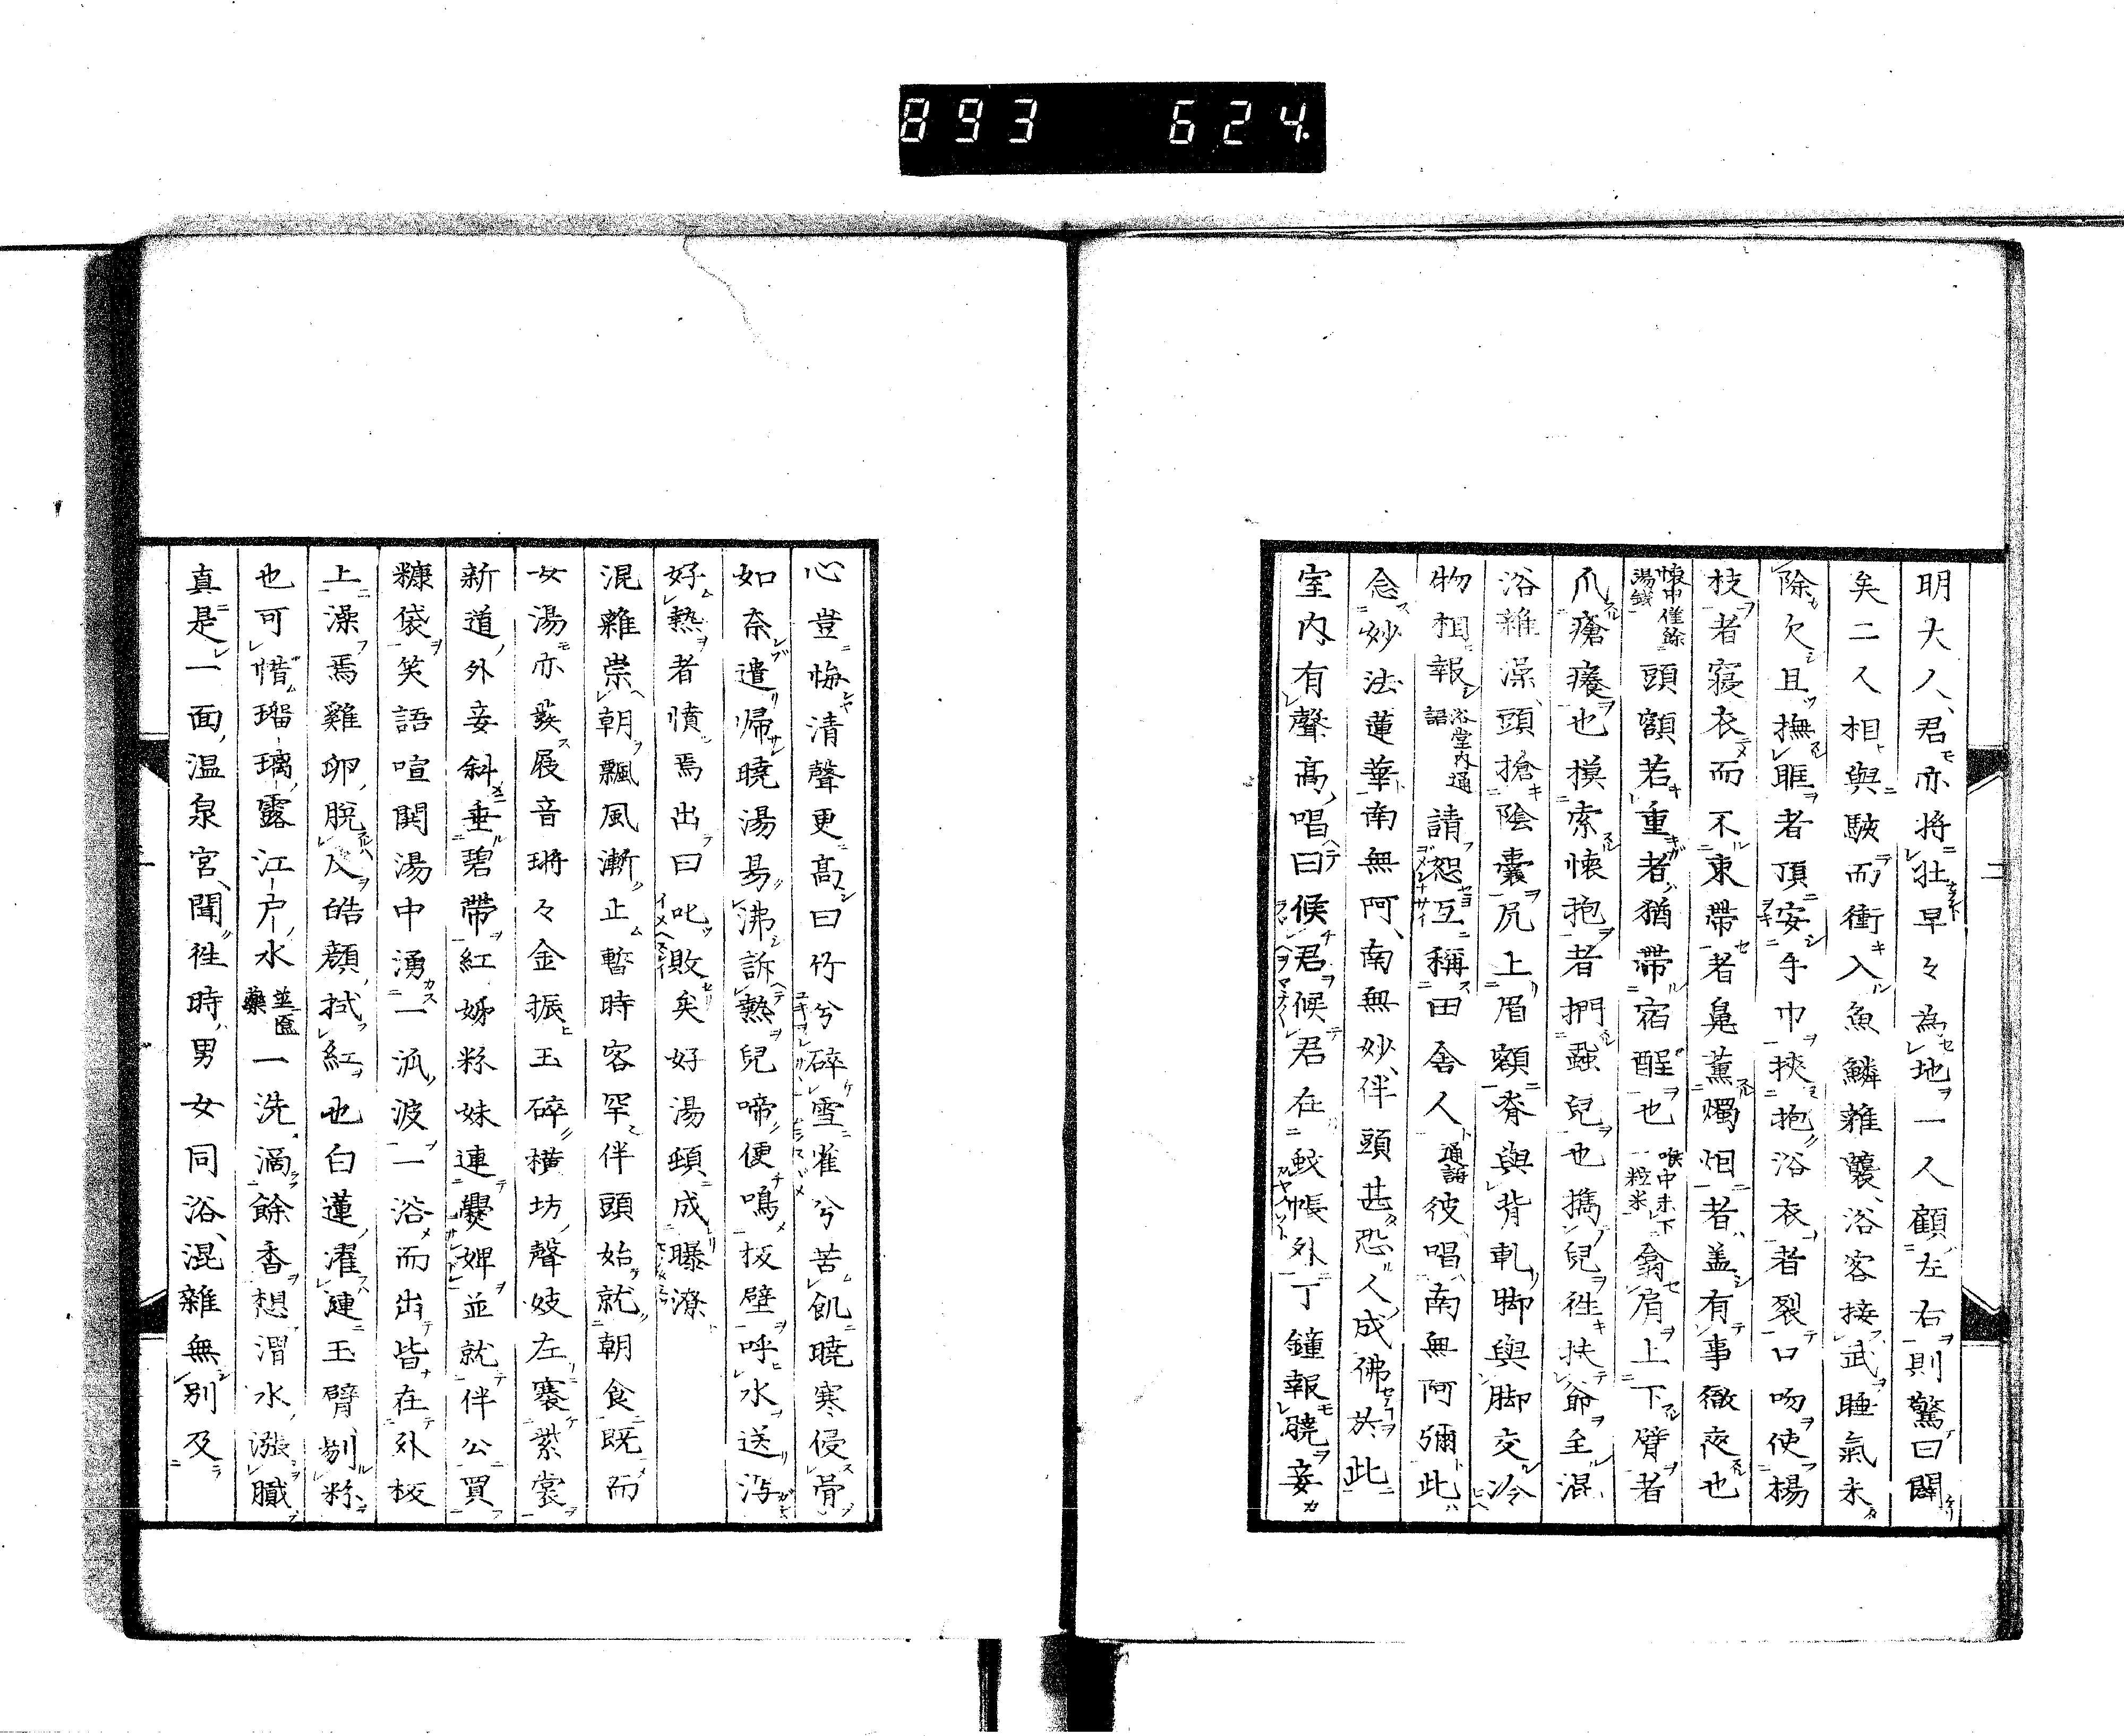 893 624.
明大人、君亦将壮早々為地一人顧左右則驚曰闢
矣二人相與駛而衝入魚鱗雜襲、浴客接武睡氣未
除欠且撫眶者頂安手巾挾抱浴衣者裂口吻使楊
枝者寢衣而不束帶者鼻薰燭烟者盖有事徹夜也
懷中僅餘湯錢頭額若重者猶帶宿酲也喉中未下一粒米翕肩上下臂者
爪瘡癢也模索懷抱者捫蝨兒也攜兒徃扶爺全混
浴雜澡、頭搶陰囊尻上眉額脊與背軋脚與脚交冷
物相報浴堂內通語請恕互稱田舍人通語彼唱南無阿彌此
念妙法蓮華南無阿、南無妙、伴頭甚恐人成佛於此
室內有聲高唱曰候君候君在蚊帳外丁鐘報曉妾
心豈悔清聲更高曰竹兮碎雪雀兮苦飢曉寒侵骨
如奈遣歸曉湯易沸訴熱兒啼便鳴板壁呼水送泻
好熱者憤焉出曰叱敗矣好湯頓成曝潦
混雜崇朝飄風漸止暫時容罕伴頭始就朝食既而
女湯亦發屐音琤々金振玉碎橫坊聲妓左褰紫裳
新道外妾斜垂碧帶紅姊粉妹連爨婢並就伴公買
糠袋笑語喧鬨湯中湧一派波一浴而出皆在外板
上澡焉雞卵脫入皓顏拭紅也白蓮濯漣玉臂剔粉
也可惜瑠璃露江戶水並匳藥一洗滴餘香想渭水漲膩
真是一面温泉宮聞徃時男女同浴、混雜無別及